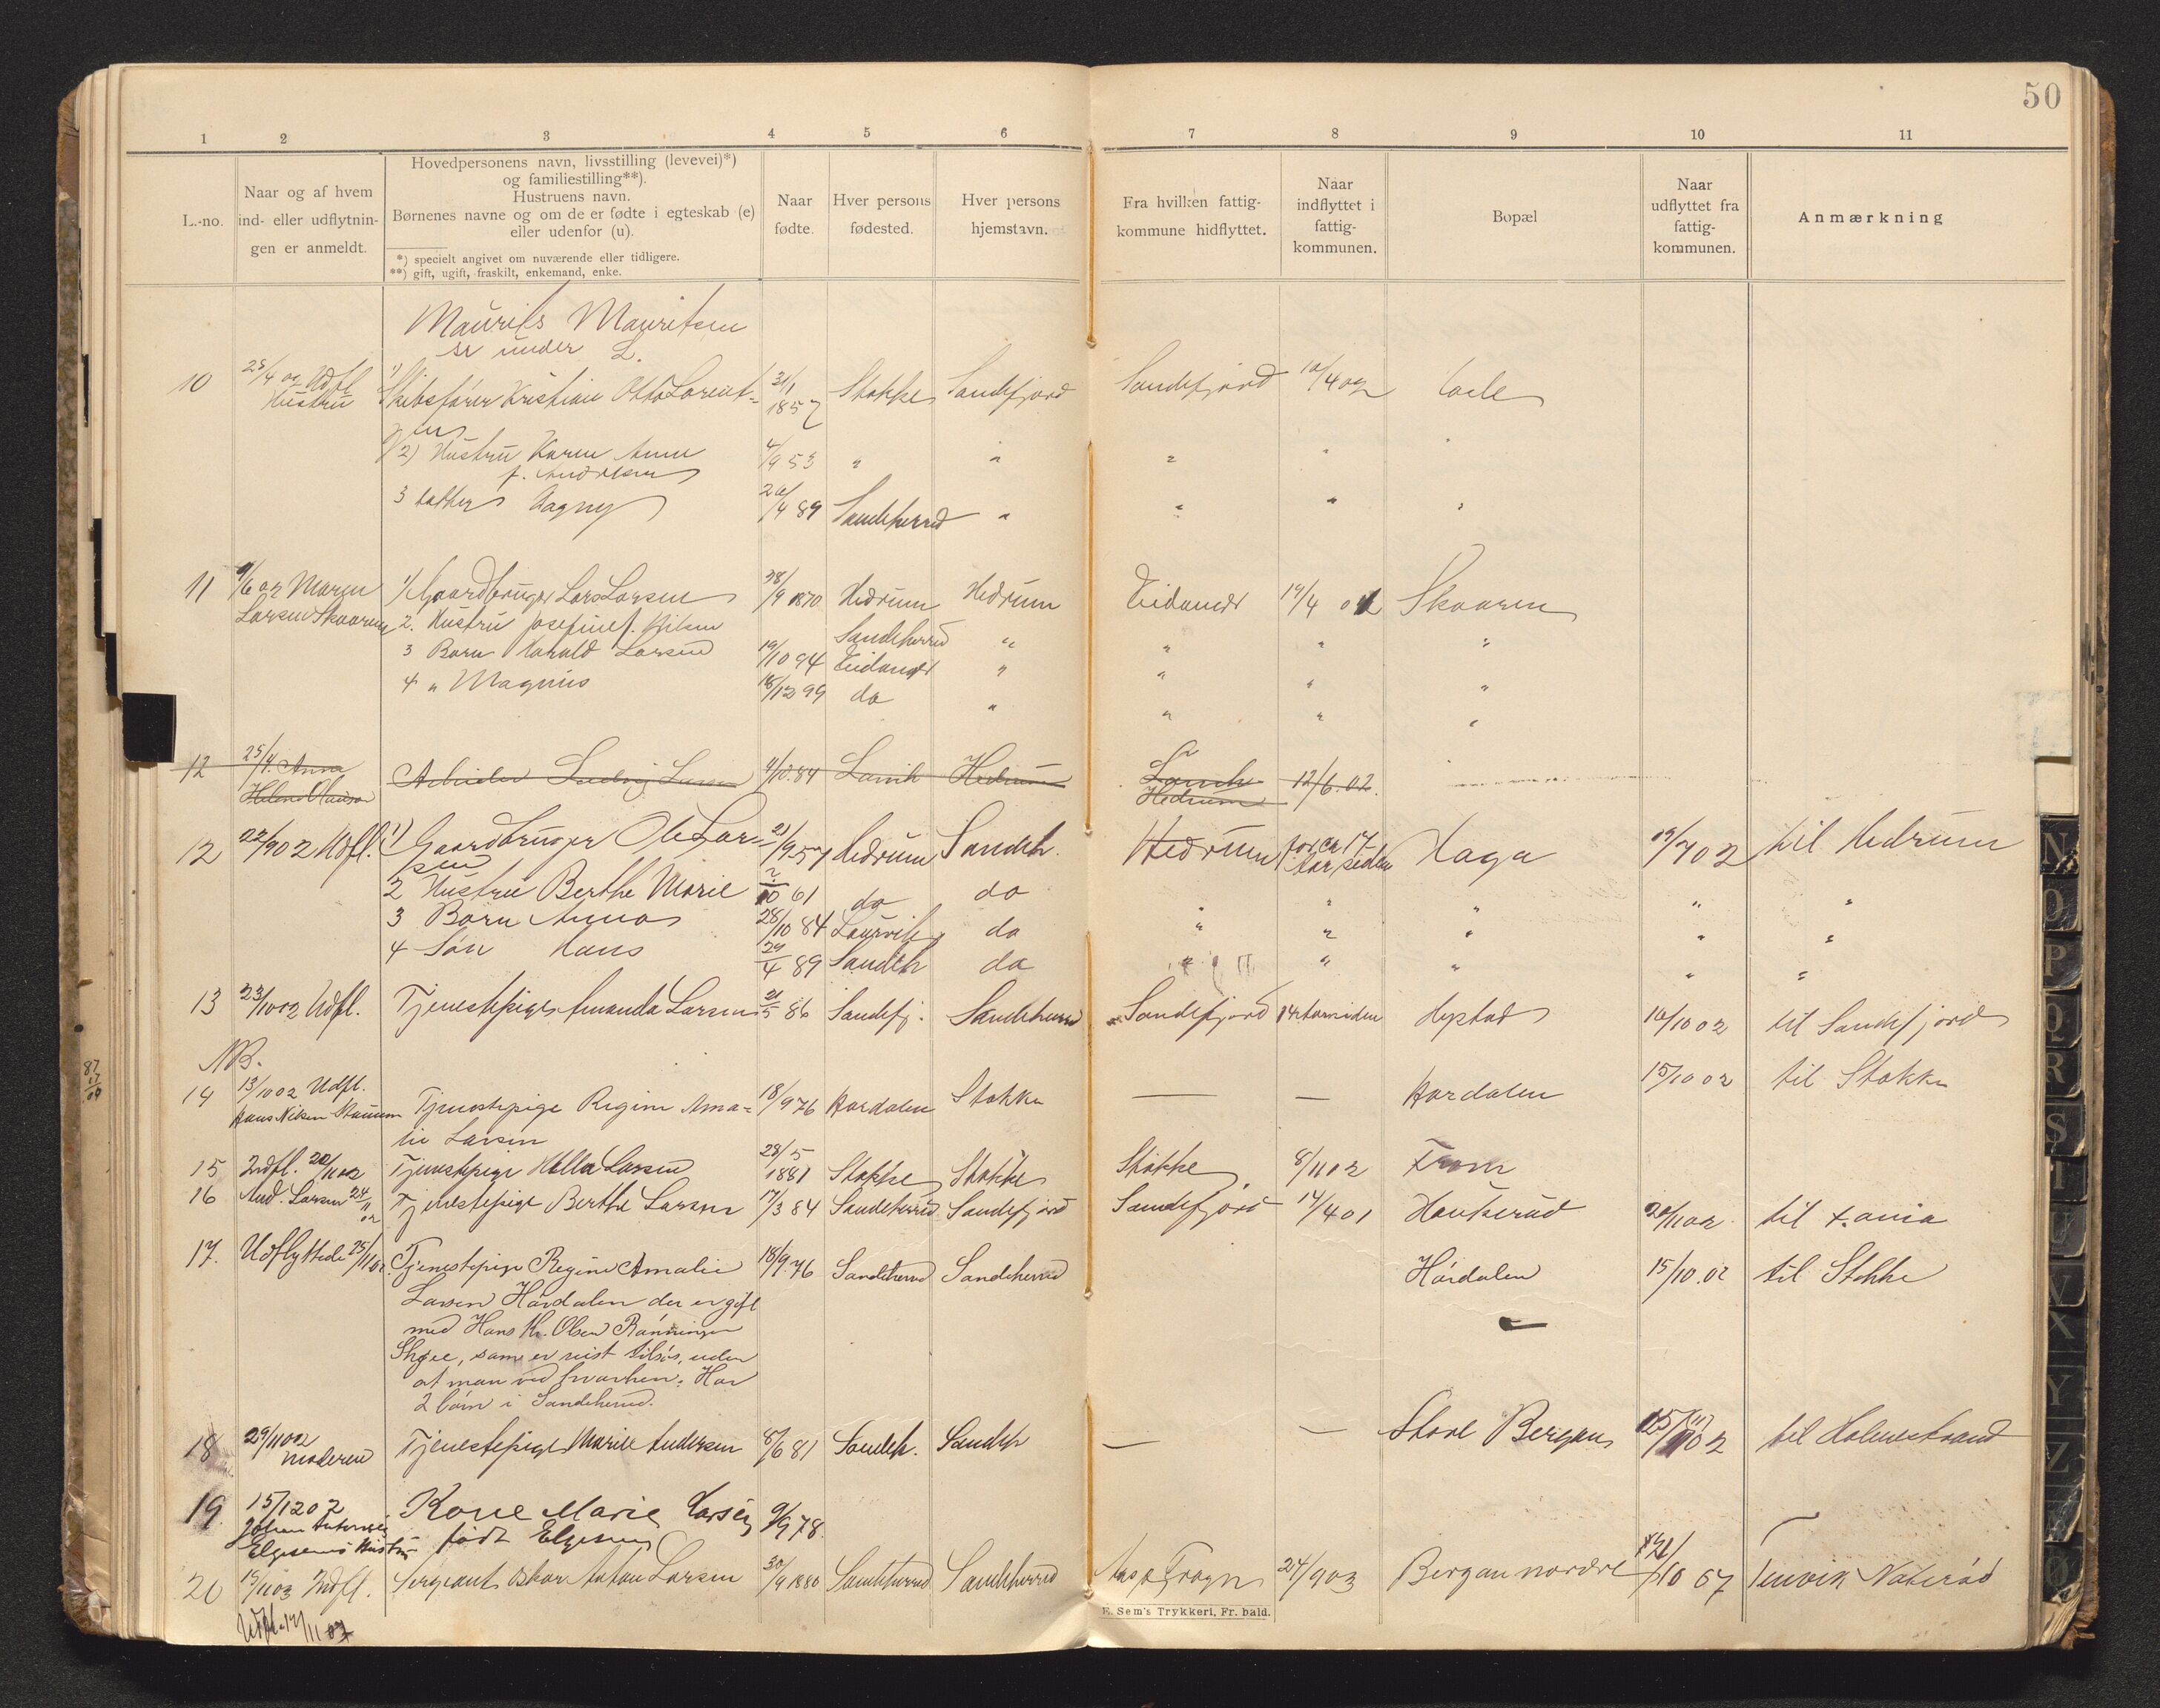 50
1 2 3 4 5 6 7 8 9 10 11
L.-no.
Naar og af hvem
ind- eller udflytnin-
gen er anmeldt.
Hovedpersonens navn, livsstilling (levevei)*)
og familiestilling**).
Hustruens navn.
Børnenes navne og om de er fødte i egteskab (e)
eller udenfor (u).
*) specielt angivet om nuværende eller tidligere.
**) gift, ugift, fraskilt, enkemand, enke.
Naar
fødte.
Hver persons
fødested.
Hver persons
hjemstavn.
Fra hvilken fattig-
kommune hidflyttet.
Naar
indflyttet i
fattig-
kommunen.
Bopæl
Naar
udflyttet fra
fattig-
kommunen.
Anmærkning
Maurits Mauritsen
se under L.
10 25/4 02 Udfl 1) Skibsfører Kristian Otto Lorent- 31/1 1857 Stokke Sandefjord Sandefjord 10/4 02
Hustru
sen
2) Hustru Karen Anne 4/9 53 " " " " "
f. Andresen
3 datter Dagny 26/4 89 Sandeherred " " " "
11 9/6 02 Maren 1) Gaardbruger Lars Larsen 28/9 1870 Hedrum Hedrum Tidanæs 14/4 02 Skaaren
Larsen Skaaren 2. Hustru Josefine f. Nilsen Sandeherred " " " "
3 Barn Harald Larsen 19/10 94 Eidanger " " " "
4 " Magnus 18/12 99 do " " " "
12 25/4. Anna Arbeider Ludvig Larsen 4/10 84 Larvik Hedrum Larvik 12/6.02.
Helene Olausen Hedrum
12 22/9 02 Udfl. 1) Gaardbruger Ole Lar- 21/9 57 Hedrum Sandeh. Hedrum for ca 17 Haga 19/7 02 til Hedrum
sen aar siden
2 Hustru Berthe Marie ?/10 61 do do " " " " "
3 Barn Anna 28/10 84 Laurvik do " " " " "
4 Søn Hans 29/4 89 Sandeh do " " " " "
13 23/10 02 Udfl. Tjenestepige Amanda Larsen 21/5 86 Sandefj. Sandeherred Sandefjord 14 aar siden Hystad 16/10 02 til Sandefjord
NB.
14 13/10 02 Udfl. Tjenestepige Regine Ama- 18/9 76 Hordalen Stokke — — Hordalen 15/10 02 til Stokke
Hans Nilsen
lie Larsen
15 Indfl. 20/11 02 Tjenestepige Hella Larsen 28/5 1881 Stokke Stokke Stokke 8/11 02 Fram
16 And. Larsen 24/11 02 Tjenestepige Berthe Larsen 17/3 84 Sandeherred Sandefjord Sandefjord 14/4 01 Haukerød 20/11 02 til X.ania
17. Udflyttede 25/11 02. Tjenestepige Regine Amalie 18/9.76 Sandeherred Sandeherred Hårdalen 15/10.02 til Stokke
Larsen Hårdalen der er gift
med Hans Kr. Olsen Rønningen
Skjee, som er reist tilsjøs, uden
at man ved hvorhen. Har
2 børn i Sandeherred.
18 29/11 02 Moderen Tjenestepige Marie Andersen 8/6 81 Sandeh. Sandeh — — Store Bergan 15/11 02 til Holmestrand
19. 15/12 02 Kone Marie Larsen 9/9 78.
Johan Antonsen
Elgesens Hustru født Elgesen
20 19/11 03 Indfl. Sergeant Oskar Anton Larsen 30/9 1880 Sandeherred Sandeherred Aas p Frogn 24/9 03 Bergan nordre 10 07 Tenvik Nøterød
Udfl. 12/11 07
E. Sem's Trykkeri, Fr. hald.
N O P Q R S T U V X Y Z Ø